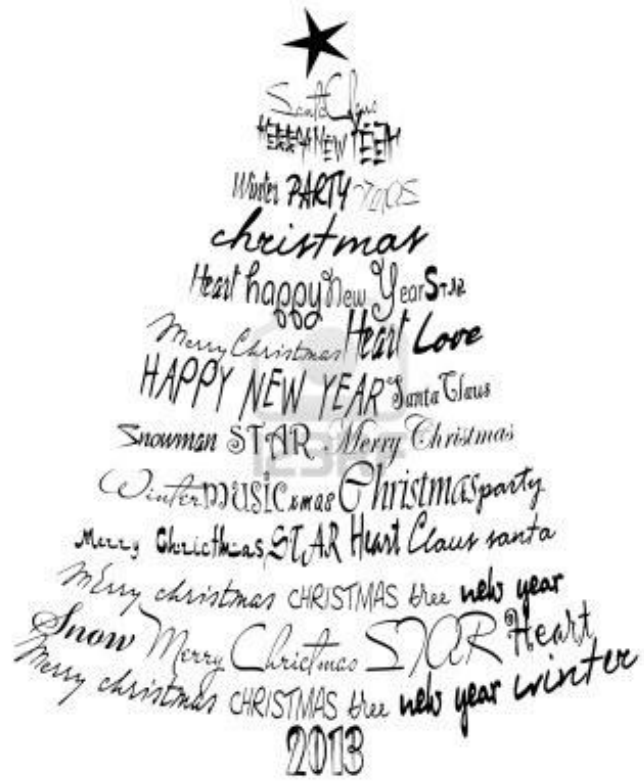 Santa Claus
HAPPY NEW YEAR
Winter PARTY
christmas
Heart happy New Year Star
Merry Christmas Heart Love
HAPPY NEW YEAR Santa Claus
Snowman STAR Merry Christmas
Winter MUSIC xmas Christmas party
Merry Christmas STAR Heart Claus santa
Merry christmas CHRISTMAS tree new year
Snow Merry Christmas STAR Heart
Merry christmas CHRISTMAS tree new year winter
2013